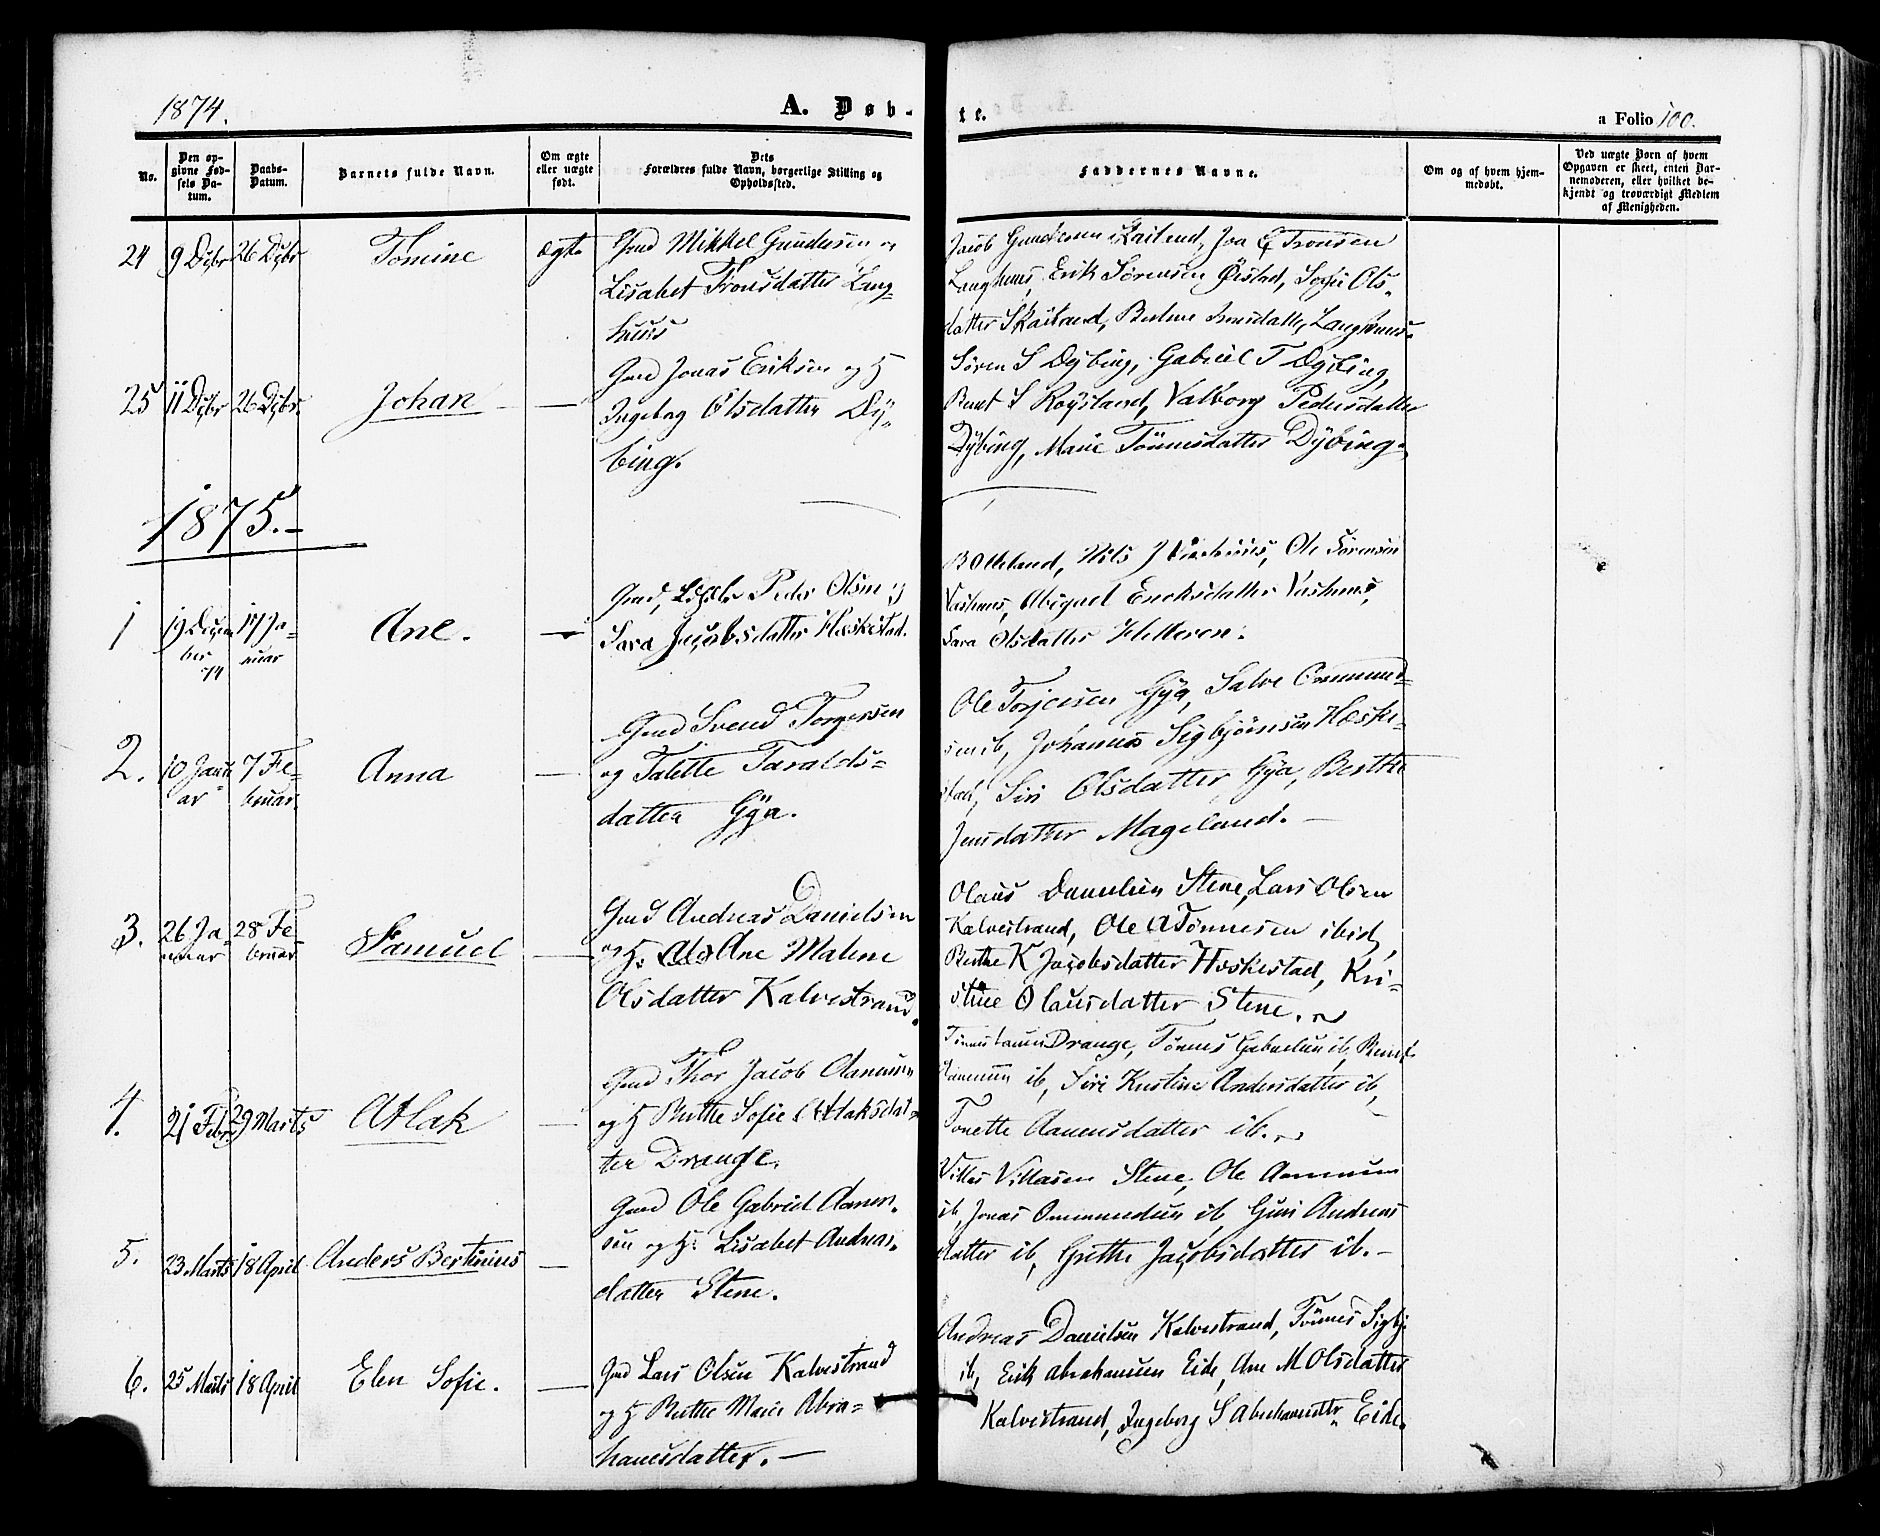 1874.
A. Døb-
te.
a Folio 100.
No.
Den op-
givne Fød-
sels Da-
tum.
Daabs-
Datum.
Barnets fulde Navn.
Om ægte
eller uægte
født.
Dets
Forældres fulde Navn, borgerlige Stilling og
Opholdssted.
Faddernes Navne.
Om og af hvem hjem-
medøbt.
Ved uægte Børn af hvem
Opgaven er skeet, enten Bar-
nemoderen, eller hvilket be-
kjendt og troværdigt Medlem
af Menigheden.
24
9 Dcbr
26 Dcbr
Tomine
ægte
Gmd Mikkel Gundersen og
Lisabet Tronsdatter Laug-
huus
Jacob Gundersen Skailand, Joa E Tronsen
Laughuus, Erik Sørensen Øistad, Sofie Ols-
datter Skailand, Tronsdatter Laughuus
25
11 Dcbr
26 Dcbr.
Johan
Gmd Jonas Eriksen og H
Ingebog Olsdatter Dy-
bing.
Søren S Dybing, Gabriel T Dybing,
Bernt S Røysland, Valborg Pedersdatter
Dybing, Marie Tønnesdatter Dybing.
1875.-
1
19 Decem
ber
74
17 Ja-
nuar
Ane.
Gmd, Peder Olsen og
Sara Jacobsdatter Hæskestad.
Nils J Ole Sørensen
Vashuus, Abigael Ericksdatter Vashuus,
Sara Olsdatter Helleren.
2.
10 Janu
ar
7 Fe-
bruar.
Anna
Gmd Svend Torgersen
og Talette Taralds-
datter Gya.
Ole Torjesen Gya, Salve Ommund-
sen ib, Johannes Sigbjørnsen Hæske-
stad, Siri Olsdatter Gya, Berthe
Jensdatter Mageland. -
3.
26 Ja-
nuar
28 Fe
bruar
Samuel
Gmd Andreas Danielsen
og H. Ane Malene
Olsdatter Kalvestrand.
Olaus Danielsen Stene, Lars Olsen
Kalvestrand, Ole A Tønnesen ibid,
Berthe K Jacobsdatter Hæskestad, Kri-
stine Olausdatter Stene.
4.
21 Febr
29 Marts
Atlak
Gmd Thor Jacob Aanensen
og H Berthe Sofie Atlaksdat-
ter Drange.
Drange, Tønnes Gabrielsen ib, Bernt
Aanensen ib, Siri Kristine Andersdatter ib,
Tonette Aanensdatter ib.
5.
23 Marts
18 April
Anders Bertinius
Gmd Ole Gabriel Aanen-
sen og H. Lisabet Andreas-
datter Stene.
Villas Villasen Stene, Ole Aanensen
ib, Jonas Ommundsen ib, Guri Andreas
datter ib, Grethe Jacobsdatter ib. -
6.
25 Marts
18 April
Elen Sofie.
Gmd Lars Olsen Kalvestrand
og H Berthe Marie Abra-
hamsdatter. -
Andreas Danielsen Kalvestrand, Tønnes Sigbj.
ib, Erik Abrahamsen Eide, Ane M Olsdatter
Kalvestrand, Ingeborg S Abrahamsdtr Eide.